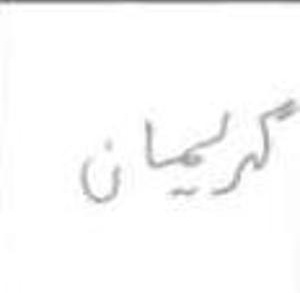 گریمان